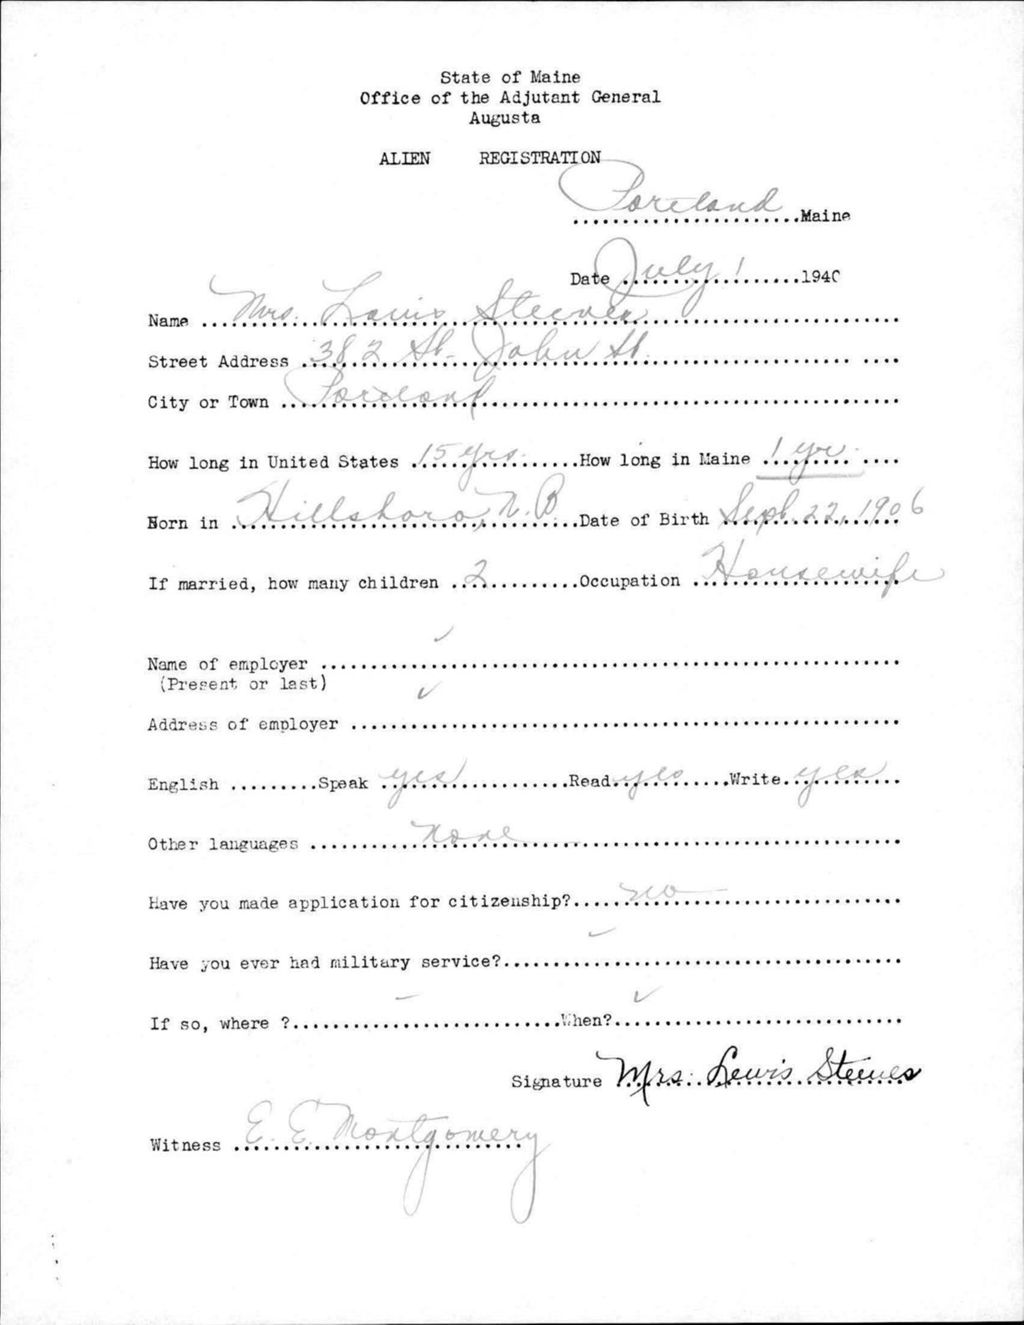 State of Maine
Office of the Adjutant General
Augusta
ALIEN REGISTRATION
Portland Maine
Date July 1 1940
Name Mrs. Louis Steeves
Street Address 382 St. John St.
City or Town Portland
How long in United States 15 yrs. How long in Maine 1 yr.
Born in Hillsboro, N.B Date of Birth Sept. 22, 1906
If married, how many children 2 Occupation Housewife
Name of employer
(Present or last)
Address of employer
English Speak yes Read yes Write yes
Other languages none
Have you made application for citizenship? no
Have you ever had military service?
If so, where ? When?
Signature Mrs. Lewis Steeves
Witness E. E. Montgomery